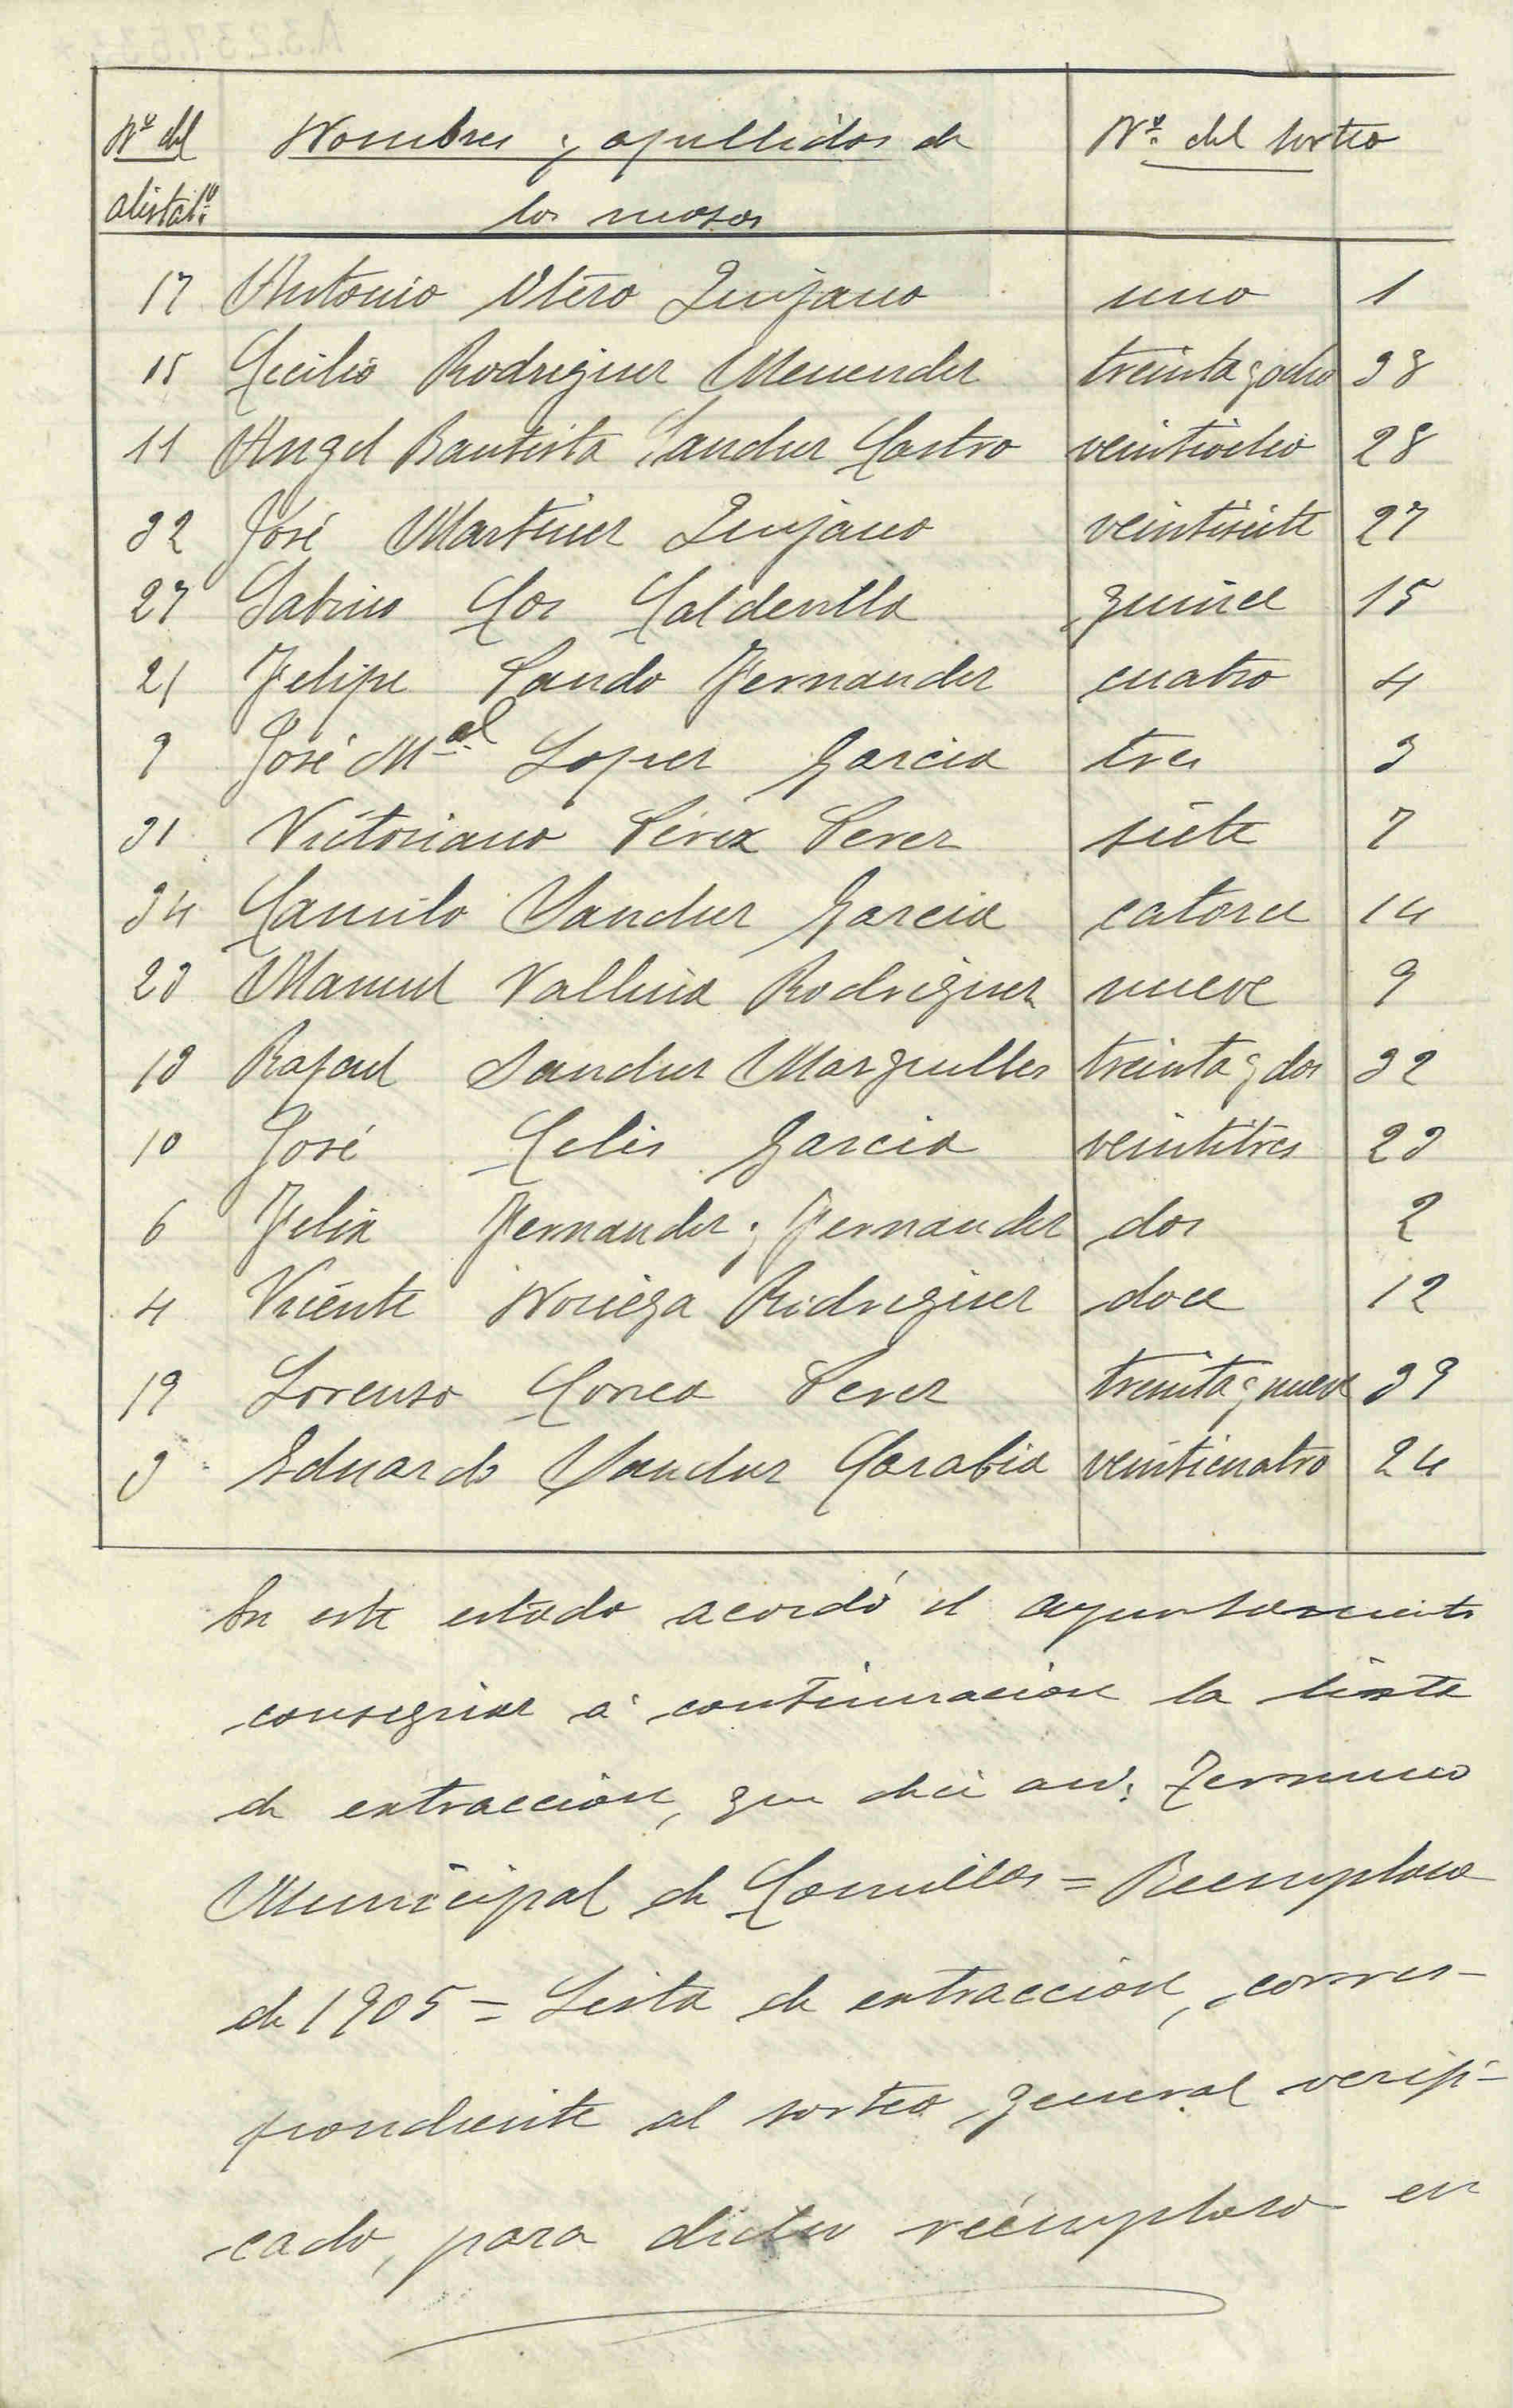 Nº del Nombres y apellidos de Nº del sorteo
alistatº los mosos
17 Antonio Otero Quijano uno 1
15 Cecilio Rodriguez Menendez treinta y ocho 38
11 Angel Bautista Sanchez Castro veintiocho 28
32 José Martinez Quijano veintisiete 27
27 Sabino Cos Caldevilla quince 15
21 Felipe Pando Fernandez cuatro 4
9 José Mel Lopez Garcia tres 3
31 Victoriano Pérez Perez siete 7
34 Camilo Sanchez Garcia catorce 14
23 Manuel Vallina Rodriguez nueve 9
13 Rafael Sanchez Marquilles treinta y dos 32
10 José Celis Garcia veintitres 23
6 Felix Fernandez y Fernandez dos 2
4 Vicente Noriega Rodriguez doce 12
19 Lorenzo Correa Perez treinta y nueve 39
3 Eduardo Sanchez Carabia veinticuatro 24
En este estado acordó el ayuntamiento
consignar á continuacion la lista
de extraccion, que dice asi: Termino
Municipal de Comillas = Reemplazo
de 1905 = Lista de extraccion, corres-
pondiente al sorteo general verifi-
cado, para dicho reémplazo en